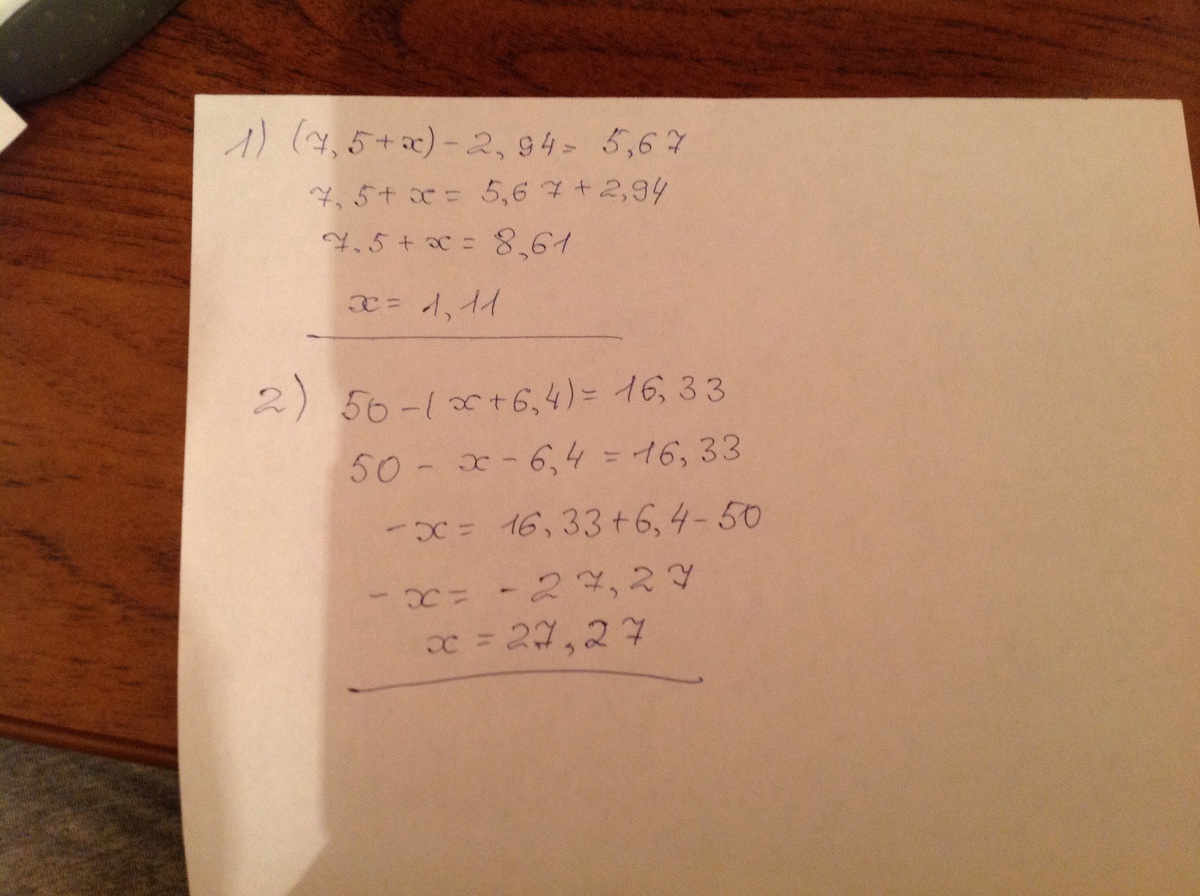 1) (7,5+x)-2,94= 5,67
7,5+x= 5,67+2,94
7.5+x= 8,61
x= 1,11
2) 50-(x+6,4)= 16,33
50- x-6,4 =16,33
-x= 16,33+6,4-50
-x= -27,27
x=27,27